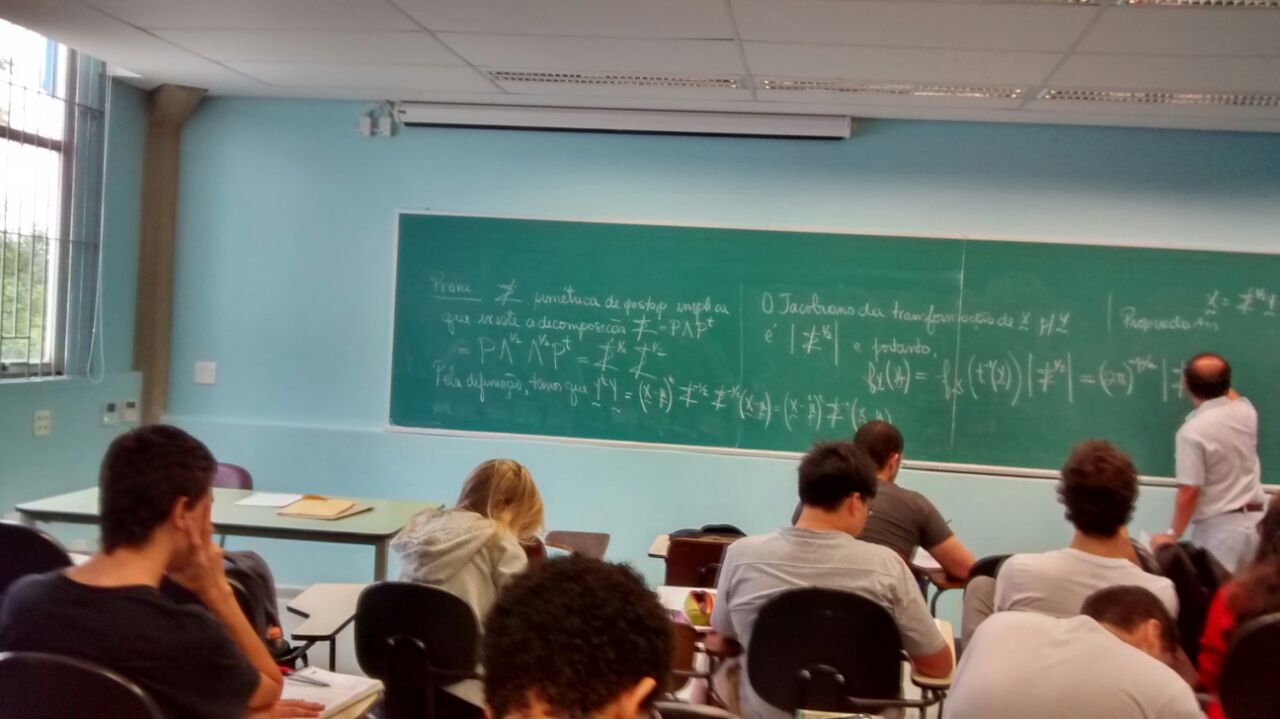 Prova Σ simétrica de pos+op implica
que existe a decomposição Σ = PΛP^t
= PΛ^{1/2} Λ^{1/2} P^t = Σ^{1/2} Σ^{1/2}
Pela definição, temos que Y^t Y = (X - μ)^t Σ^{-1/2} Σ^{-1/2} (X - μ) = (X - μ)^t Σ^{-1} (X - μ)
O Jacobiano da transformação de X p/ Y
é |Σ^{1/2}| e portanto,
f_X(X) = f_X (t^{-1}(X)) |Σ^{-1/2}| = (2π)^{-p/2} |Σ
X = Σ^{1/2} Y